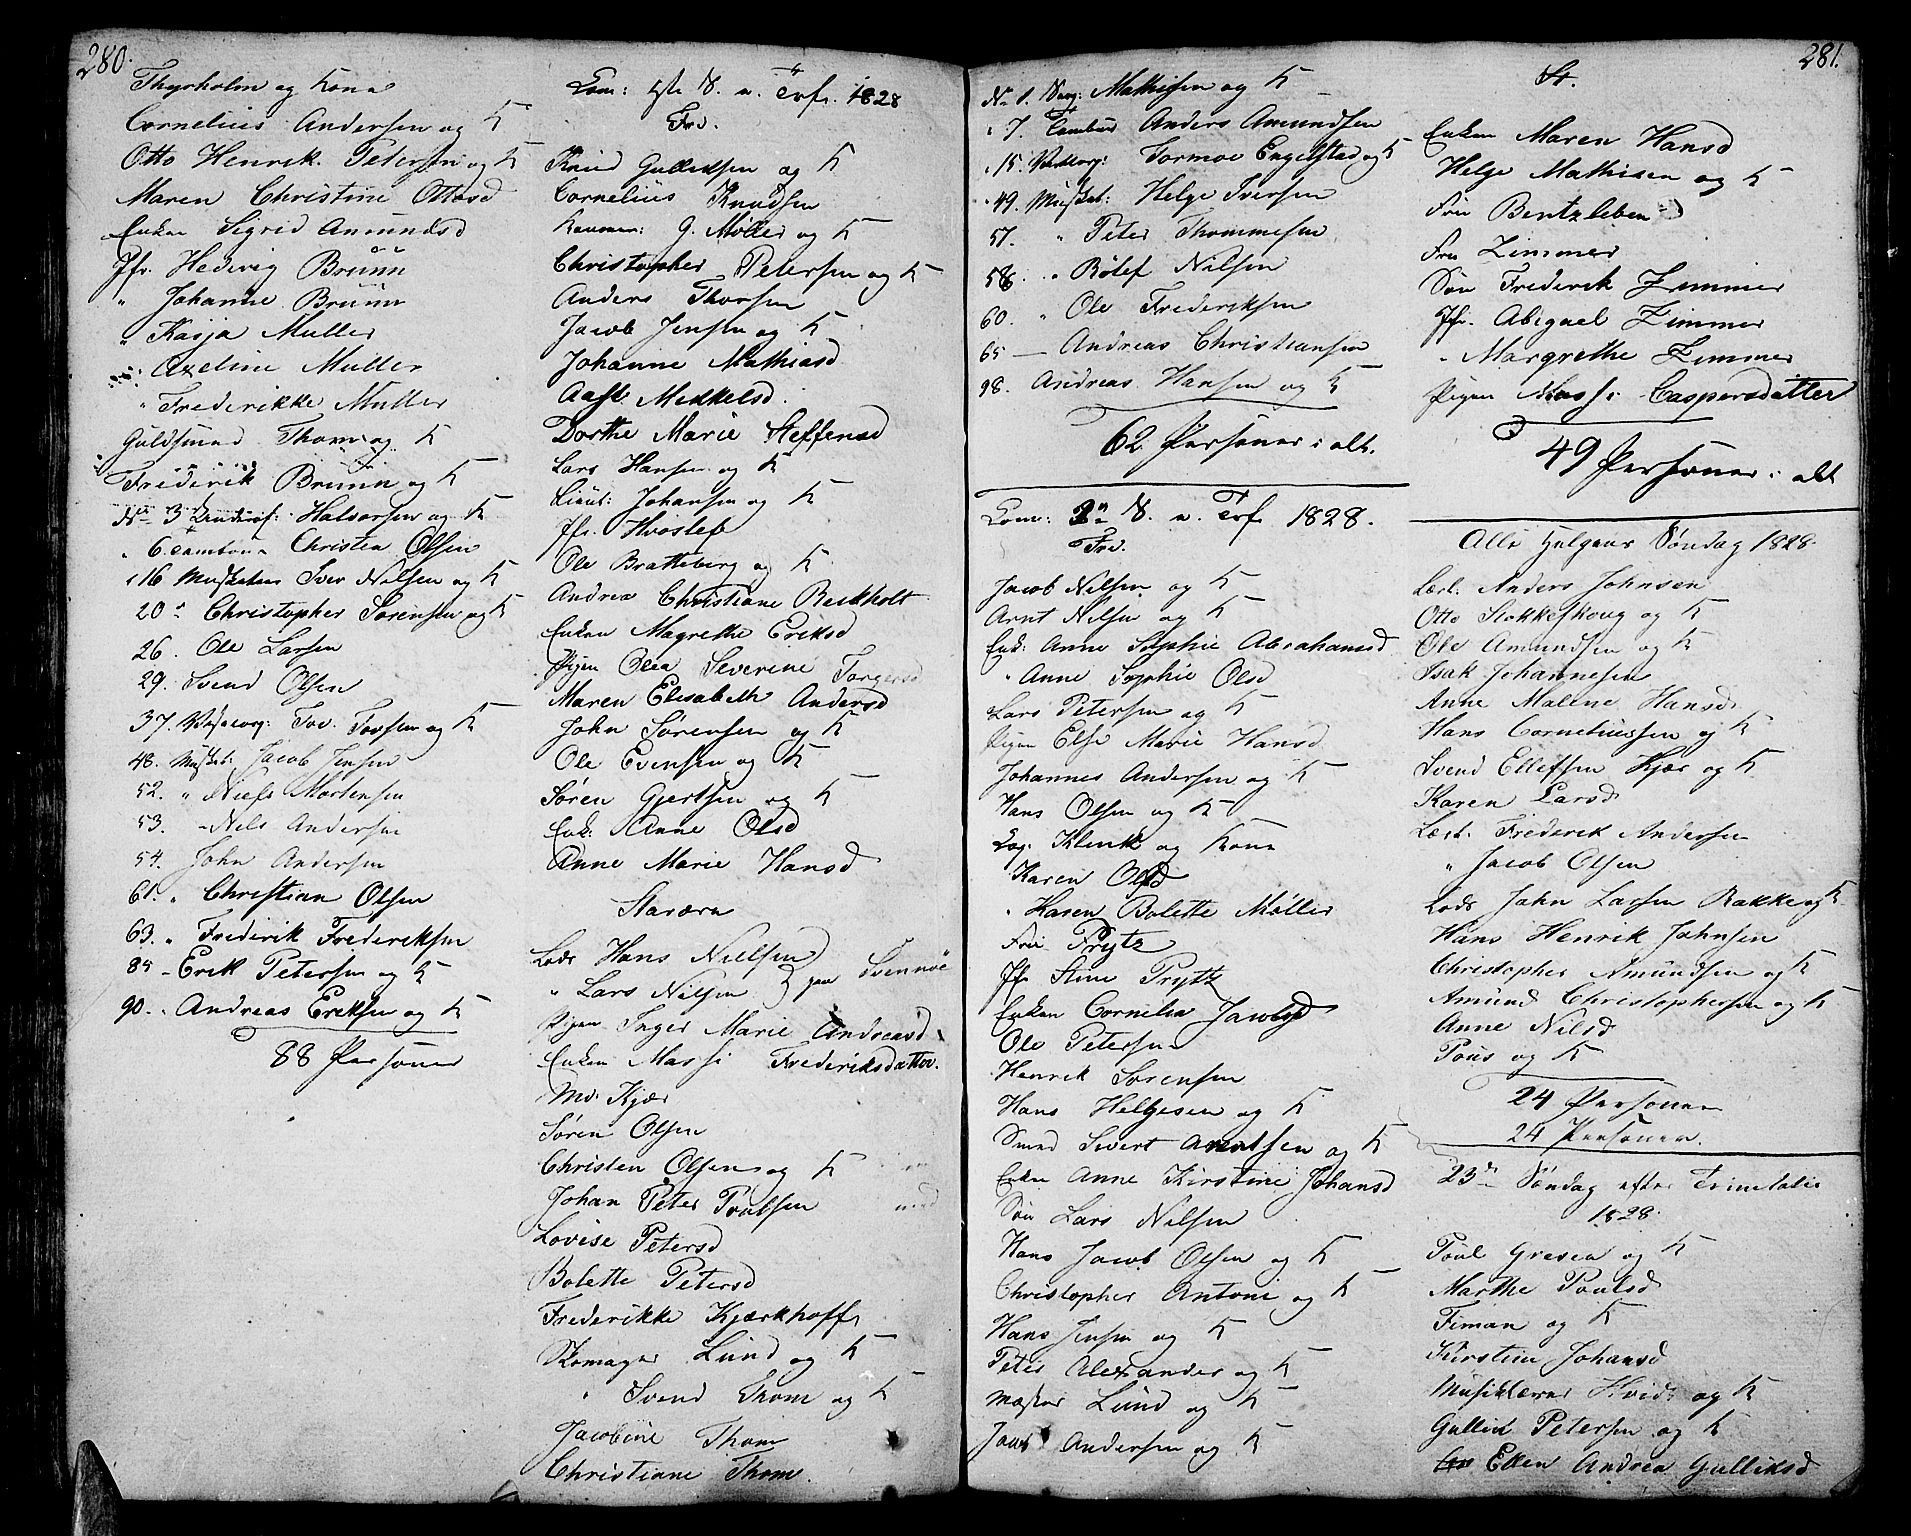 280.
Thyrholm og Kone
Cornelius Andersen og K
Otto Henrik Petersen og K
Maren Christine Ottosd
Enken Sigrid Amundsd
Jfr. Hedevig Bruun
" Johanne Bruun
" Kasja Muller
" Axeline Muller
" Frederikke Muller
Guldsmed Thom og K
Frederik Bruun og K
No 3 Underof: Halvorsen og K
" 6 Tambour Christen Olsen
" 16 Musketeer Iver Nilsen og K
20 " Christopher Sørensen og K
26. Ole Larsen
29. Svend Olsen
37. Tov. Tovsen og K
48. Musket: Jacob Jensen
52. " Niels Mortensen
53. " Nils Andersen
54. John Andersen
61. " Christian Olsen
63. " Frederik Frederiksen
85 - Erik Petersen og K
90. " Andreas Eriksen og K
88 Personer
Com: 1ste S. n. Trf. 1828
Frv.
Knud Gulliksen og K
Cornelius Knudsen
Kammer: G. Møller og K
Christopher Petersen og K
Anders Thorsen
Jacob Jensen og K
Johanne Mathiasd
Aase Mikkelsd.
Dorthe Marie Steffensd
Lars Hansen og K
Lieut: Johansen og K
Jfr. Hvoslef
Ole Bratteberg og K
Andrea Christiane Berkholt
Enken Magrethe Eriksd
Pigen Olea Severine Torgersd
Maren Elisabeth Andersd
John Sørensen og K
Ole Evensen og K
Søren Gjertsen og K
Enk: Anne Olsd
Anne Marie Hansd
Staværn
Lods Hans Nielsen
" Lars Nilsen } paa Svennøe
Pigen Inger Marie Andreasd
Enken Massi Frederiksdatter.
Md. Kjær
Søren Olsen
Christen Olsen og K
Johan Peter Poulsen
Lovise Petersd
Bolette Petersd
Frederikke Kjerkhoff
Skomager Lund og K
" Svend Thom og K
Jacobine Thom
Christiane Thom.
281.
No 1. Mathisen og K
" 7. Tambur Anders Amundsen
" 15. Tormoe Engelstad og K
" 49. Musket: Helge Iversen
57. " Peter Thommesen
58. " Rolef Nilsen
60. " Ole Frederiksen
65 — Andreas Christiansen
98. Andreas Hansen og K
62 Personer i alt.
Com: 2n S. n. Trf. 1828.
Frv.
Jacob Nilsen og K
Arnt Nilsen og K
Enk: Anne Sophie Abrahamsd
" Anne Sophie Olsd
Lars Petersen og K
Pigen Else Marie Hansd
Johannes Andersen og K
Hans Olsen og K
Log: Klenk og Kone
Karen Olsd
" Karen Bolette Møller
Fru Prytz
Jfr Stine Prytz
Enken Cornelia Jacobsd
Ole Petersen
Henrik Sørensen
Hans Helgesen og K
Smed Sivert Arntsen og K
Enken Anne Kirstine Johansd
Søn Lars Nilsen
Hans Jacob Olsen og K
Christopher Antoni og K
Hans Jensen og K
Peter Alexander og K
Mæster Lund og K
Andersen og K
St.
Enken Maren Hansd
Helge Mathisen og K
Fru Bentzleben
Fru Zimmer
Søn Frederik Zimmer
Jfr. Abigael Zimmer
" Margrethe Zimmer
Pigen Massi Caspersdatter
49 Personer i alt
Alle Helgens Søndag 1828.
Lært: Anders Johnsen
Otto Stokkeskoug og K
Ole Amundsen og K
Isak Johannesen
Anne Malene Hansd
Hans Corneliussen og K
Svend Ellefsen Kjær og K
Karen Larsd
Lært. Frederik Andersen
" Jacob Olsen
Lods John Larsen Rakke og K
Hans Henrik Johnsen
Christopher Amundsen og K
Amund Christophersen og K
Anne Nilsd
Pous og K
24 Personer
24 Personer.
23de Søndag efter Trinitatis
1828.
Poul Gresen og K
Marthe Poulsd
Timan og K
Kirstine Johansd
Musiklærer Hvid og K
Gullik Petersen og K
Eken Andrea Gulliksd